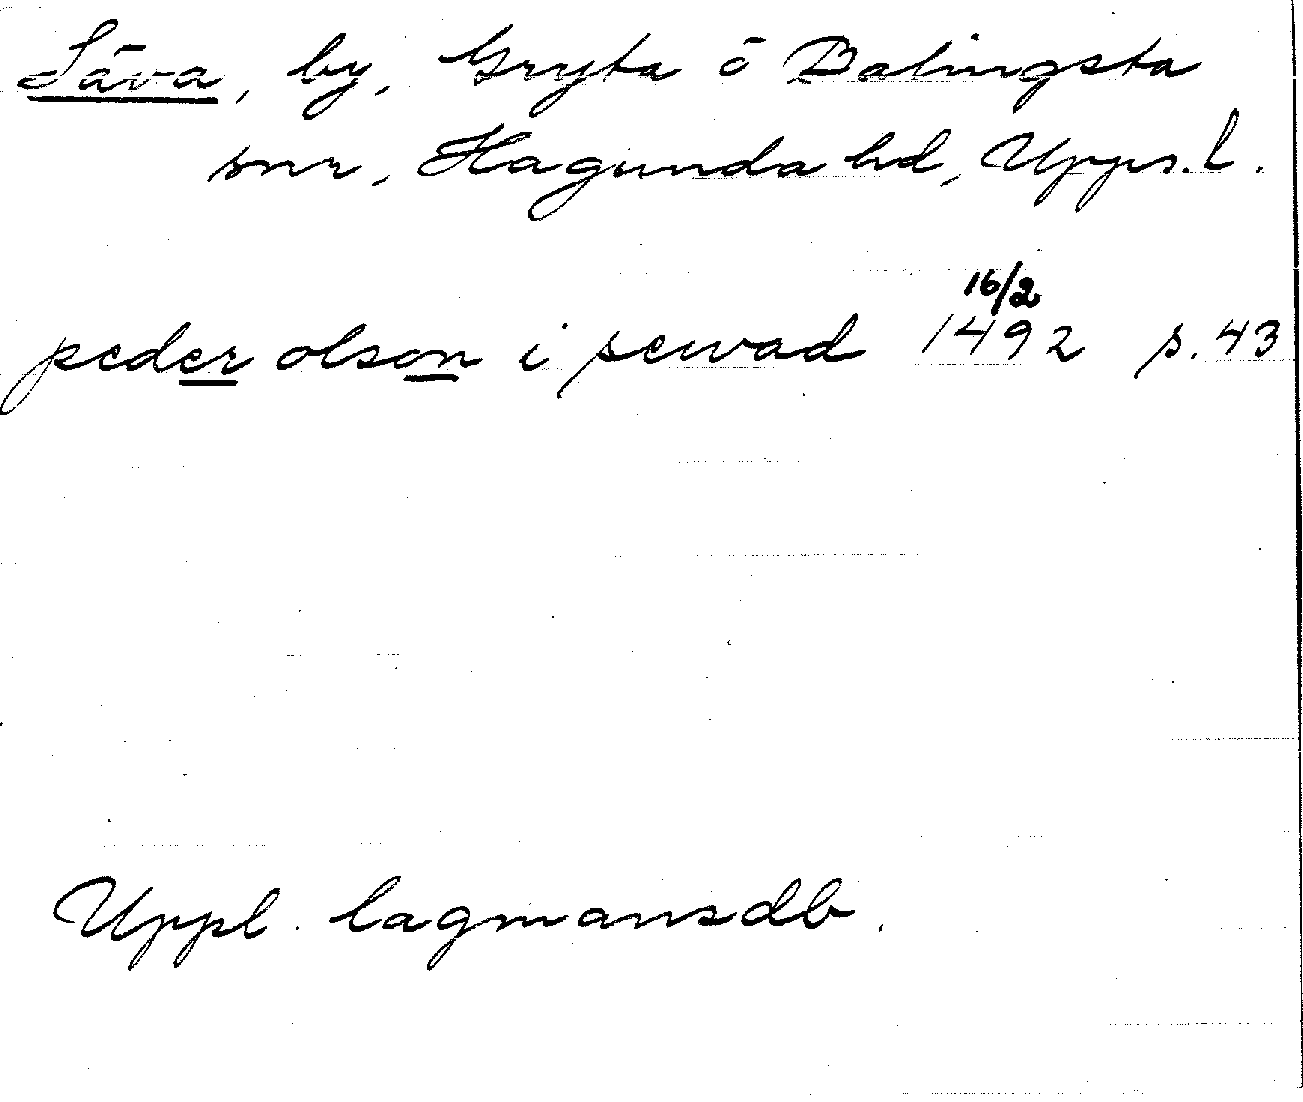 Säva, by, Gryta o Balingsta
snr, Hagunda hd, Upps. l.
16/2
peder olson i sewad 1492 s. 43
Uppl. lagmansdb.